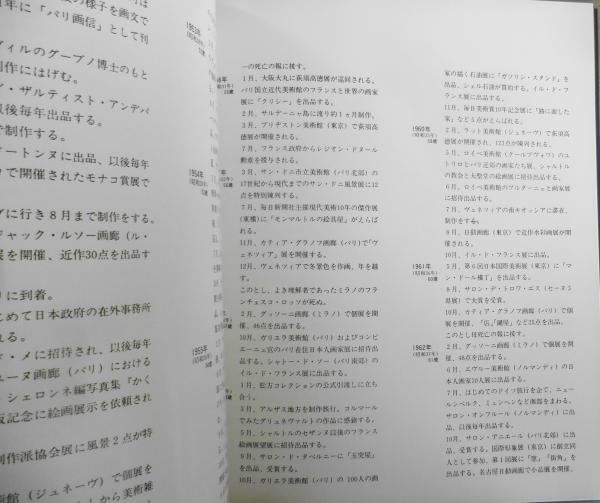 の様子を画文で
年に「パリ画信」として刊
ィルのグーブノ博士のもと
制作にはげむ。
イ・ザルティスト・アンデパ
以後毎年出品する。
で制作する。
ートンヌに出品、以後毎年
で開催されたモナコ賞展で
グに行き8月まで制作をする。
ジャック・ルソー画廊（ル・
展を開催、近作30点を出品す
リに到着。
じめて日本政府の在外事務所
れる。
・メに招待され、以後毎年
ューヌ画廊（パリ）における
・シェロンネ編写真集『かく
版記念に絵画展示を依頼され
制作派協会展に風景2点が特
（ジュネーヴ）で個展を
しから美術雑
1953年
1954年
1955年
一の死亡の報に接す。
1月、大阪大丸に荻須高徳展が巡回される。
パリ国立近代美術館のフランスと世界の画家
展に「クリシー」を出品する。
2月、サルデーニャ島に渡り約1ヵ月制作。
3月、ブリヂストン美術館（東京）で荻須高
徳展が開催される。
7月、フランス政府からレジオン・ドヌール
勲章を授与される。
3月、サン・ドニ市立美術館（パリ北郊）の
17世紀から現代までのサン・ドニ風景展に12
点を特別陳列する。
7月、毎日新聞社主催現代美術10年の傑作展
（東横）に「モンマルトルの絵具屋」がえらば
れる。
11月、カティア・グラノフ画廊（パリ）で「ヴ
ェネツィア」展を開催する。
12月、ヴェネツィアで冬景色を作画、年を越
す。
このとし、よき理解者であったミラノのフラ
ンチェスコ・ロッソが死ぬ。
2月、グッソーニ画廊（ミラノ）で個展を開
催、46点を出品する。
10月、ガリエラ美術館（パリ）およびコンピ
エーニュ宮のパリ在住日本人画家展に招待出
品する。シャトー・ド・ソー（パリ南郊）の
イル・ド・フランス展に出品する。
1月、松方コレクションの公式引渡しに立ち
合う。
3月、アルザス地方を制作旅行。コルマール
でみたグリュネヴァルトの作品に感銘する。
5月、シャルトルのセザンヌ以後のフランス
絵画展望展に招待出品する。
9月、サロン・ド・タベルニーに「玉突屋」
を出品、受賞する。
10月、ガリエラ美術館（パリ）の100人の画
家の描く石油展に「ガソリン・スタンド」を
出品、シェル石油が買約する。イル・ド・フ
ランス展に出品する。
11月、毎日美術賞10年記念展に「路に面した
家」など5点がえらばれる。
1960年
（昭和35年）
2月、ラット美術館（ジュネーヴ）で荻須高
徳展が開催され、123点が陳列される。
5月、ロイベ美術館（ケールブヴォワ）のユ
トリロとパリ近郊の画家たち展、シャルトル
の教会と大聖堂の絵画展に招待出品する。
6月、ロイベ美術館のブルターニュと画家展
に招待出品する。
7月、ヴェネツィアの南キオッジアに滞在、
制作をする。
9月、日動画廊（東京）で近作水彩画展が開
催される。
10月、イル・ド・フランス展に出品。
1961年
（昭和36年）
60歳
5月、第6回日本国際美術展（東京）に「マ
ン・ドール横丁」を出品する。
8月、サロン・デ・トロワ・エス（セーヌ3
県展）で大賞を受賞。
10月、カティア・グラノフ画廊（パリ）で個
展を開催、「店」「鍵屋」など25点を出品。
このとし母死亡の報に接す。
1962年
（昭和37年）
61歳
2月、グッソーニ画廊（ミラノ）で個展を開
催、48点を出品する。
6月、エヴルー美術館（ノルマンディ）の日
本人画家10人展に出品する。
7月、はじめてのドイツ旅行を企て、ニュー
ルンベルク、ミュンヘンなど画嚢をまわる。
サロン・オンフルール（ノルマンディ）に出
品、以後毎年出品する。
10月、サロン・アニエール（パリ北郊）に出
品、受賞する。国際形象展（東京）に創立同
人として参加、第1回展に「窓」「街角」を
出品する。名古屋日動画廊で小品展を開催。